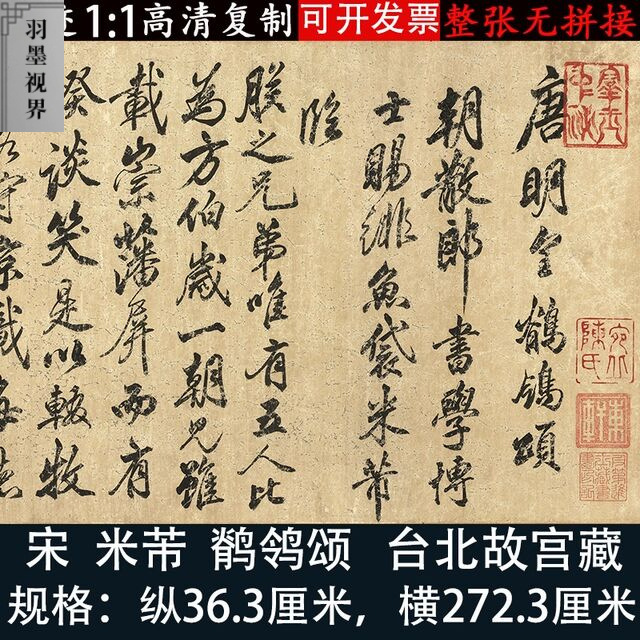 羽墨视界
1:1高清复制
可开发票
整张无拼接
唐明皇鶺鴒頌
朝散郎書學博
士賜緋魚袋米芾
臨
朕之兄弟唯有五人比
為方伯歲一朝見雖
載崇藩屏而有
睽談笑是以輟牧
宋 米芾 鹡鸰颂 台北故宫藏
规格：纵36.3厘米，横272.3厘米